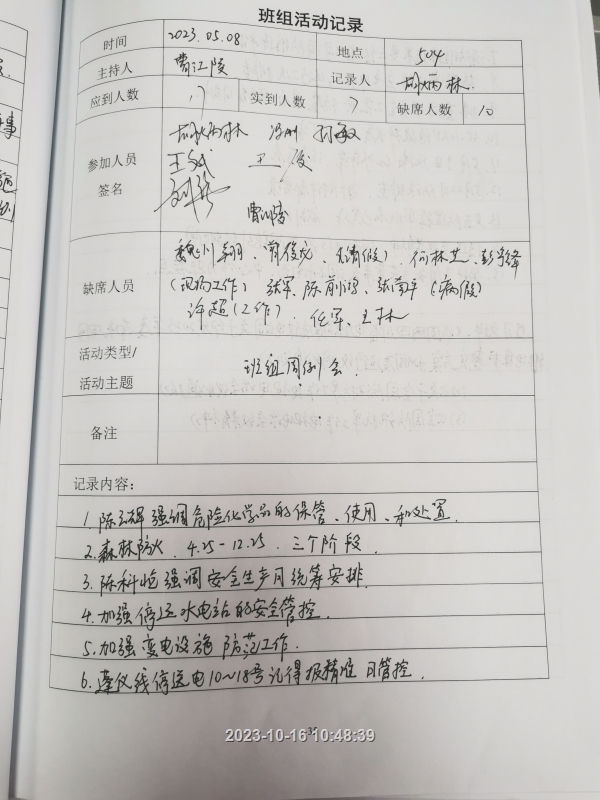 班组活动记录
时间 2023.05.08 地点 504
主持人 曹江陵 记录人 胡炳林
应到人数 17 实到人数 7 缺席人数 10
参加人员
签名
胡炳林
王斌 王俊
曹江陵
缺席人员
(请假)、何林芝、彭
(现场工作) 张军、陈前鸿、张 (病假)
许超(工作)、任军、王林
活动类型/
活动主题
班组周例会.
备注
记录内容:
1. 强调危险化学品的保管、使用、和处置.
2. 森林防火. 4.25-12.25. 三个阶段.
3. 陈科 强调安全生产月统筹安排.
4. 加强停运水电站的安全管控.
5. 加强变电设施防范工作.
6. 停运电10~18号记得报精准日管控.
2023-10-16 10:48:39